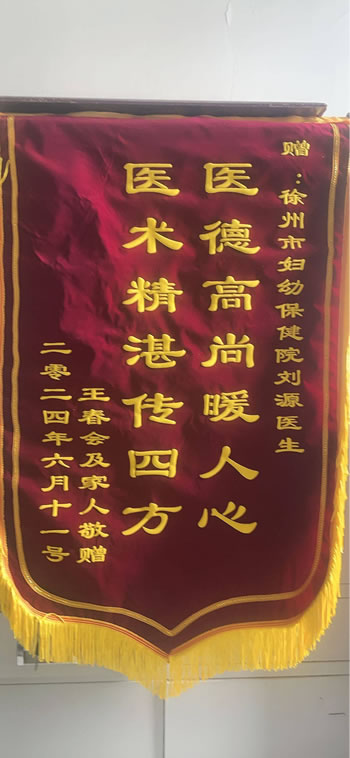 赠：徐州市妇幼保健院刘源医生
医德高尚暖人心
医术精湛传四方
王春会及家人敬赠
二零二四年六月十一号